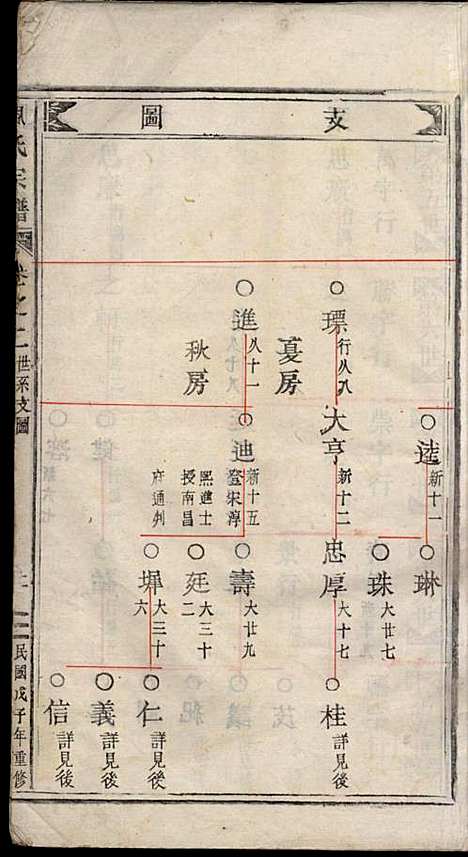 支圖
逵 新十一
琳
珠 大廿七
瓌 行八八
大亨 新十二
忠厚 大十七
桂 詳見後
夏房
進 八十一
迪 新十五
登宋淳
熙進士
授南昌
府通判
壽 大廿九
廷 大三十二
墀 大三十六
仁 詳見後
義 詳見後
信 詳見後
秋房
氏宗譜
卷之二
世系支圖
民國戊子年重修